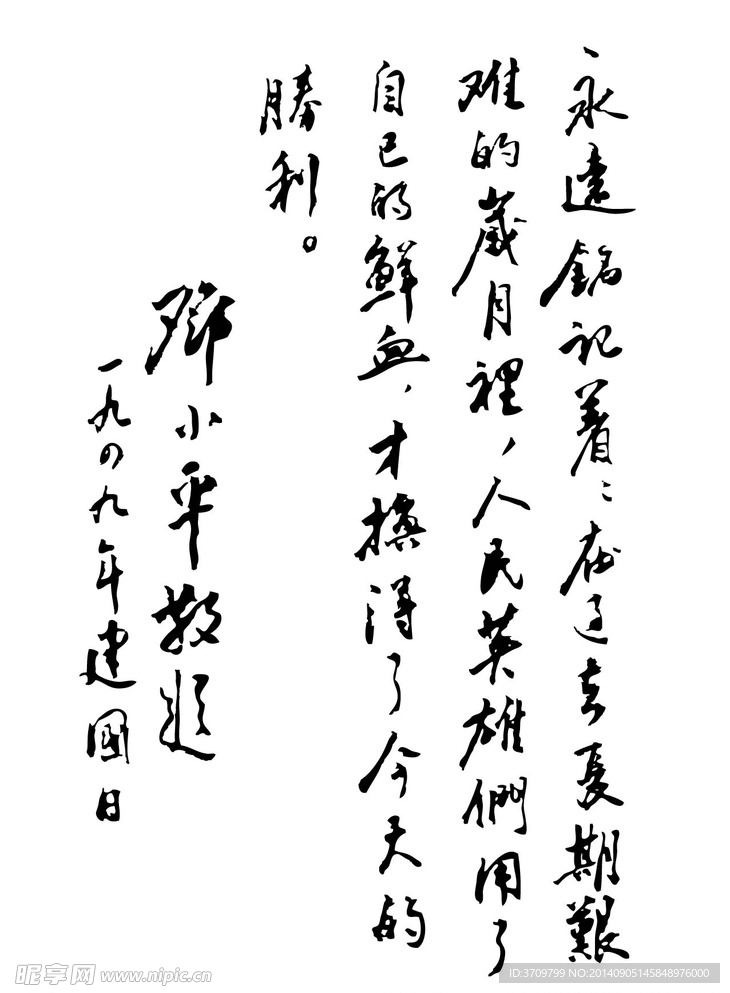 永遠銘記着：在过去長期艱
难的歲月裡，人民英雄們用了
自己的鮮血，才換得了今天的
勝利。
邓小平敬题
一九四九年建國日
昵享网 www.nipic.cn
ID:3709799 NO:20140905145848976000